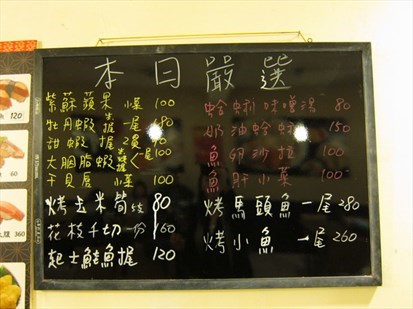 本日嚴選
紫蘇蘋果 小菜 100
牡丹蝦 生握 一尾 180
甜蝦 生握 二隻 100
大胭脂蝦 一尾 100
干貝唇 小菜 100
烤玉米筍 支 80
花枝千切 一份 160
起士鮭魚握 120
蛤蜊味噌湯 80
奶油蛤蜊 150
魚卵沙拉 100
魚肝小菜 100
烤馬頭魚 一尾 280
烤小魚 一尾 260
120
360